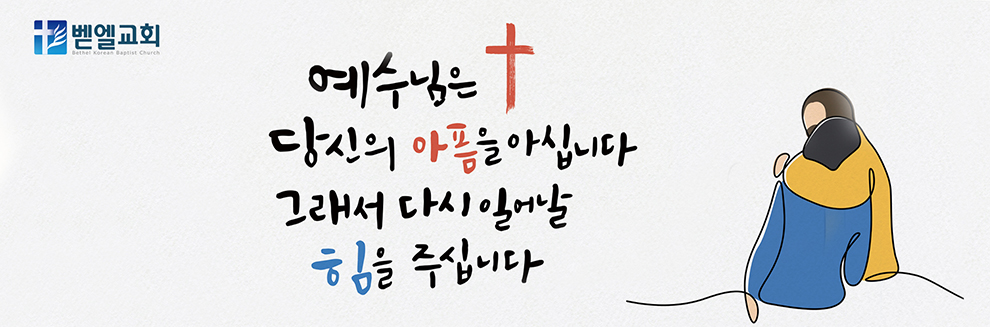 벧엘교회
Bethel Korean Baptist Church
예수님은
당신의 아픔을 아십니다
그래서 다시 일어날
힘을 주십니다